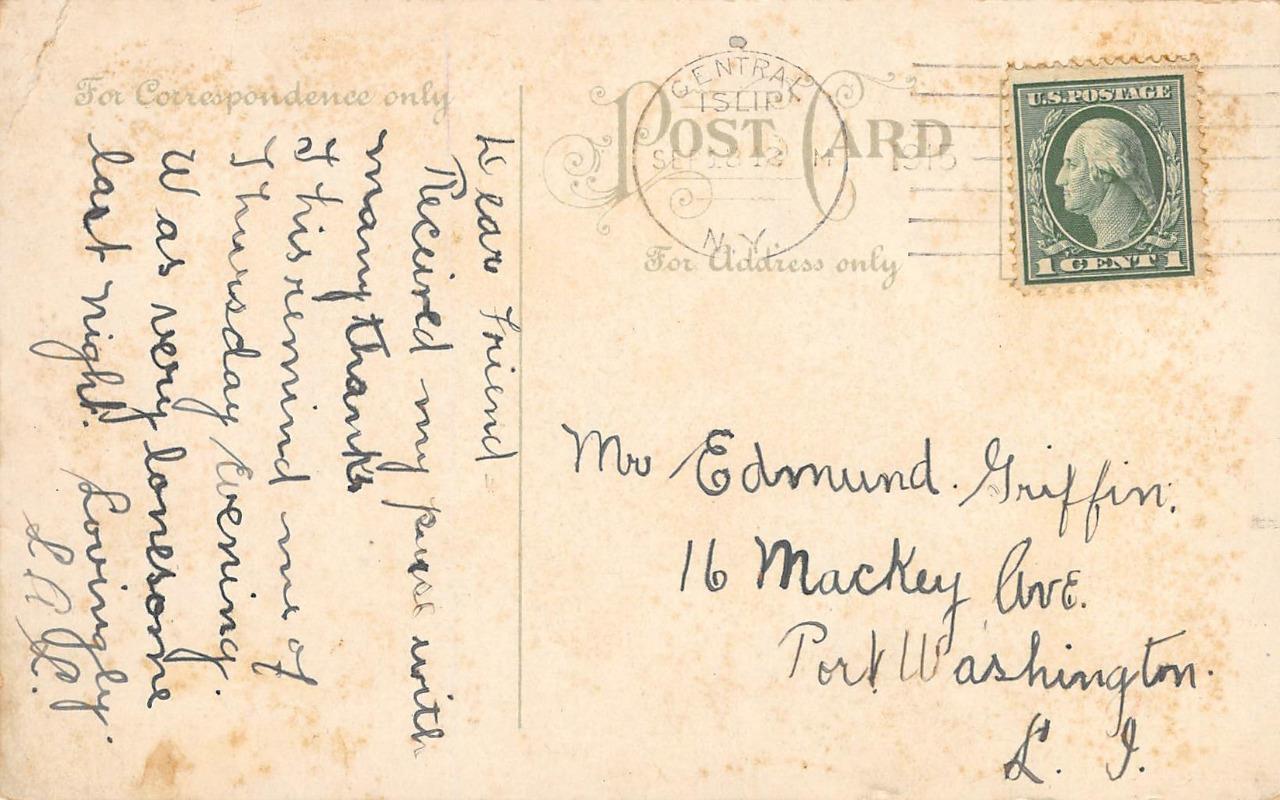 For Correspondence only
Dear Friend
Received my purse with
many thanks
This remind me of
Thursday Evening.
Was very lonesome
last night.
Lovingly.
POST CARD
For Address only
CENTRAL
ISLIP
N.Y.
U.S. POSTAGE
1 CENT 1
Mr Edmund. Griffin.
16 Mackey Ave.
Port Washington.
L. I.